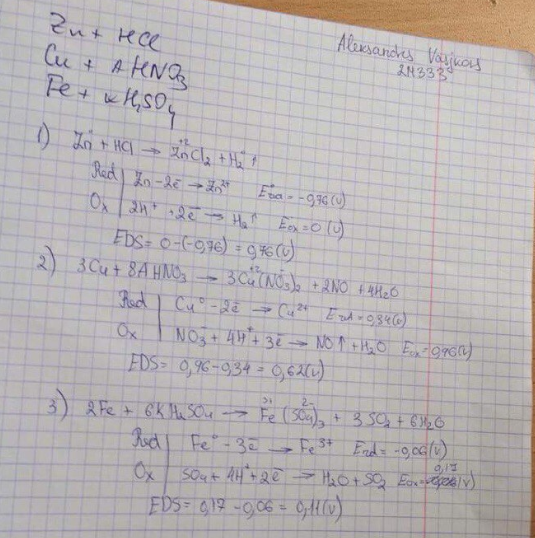 Zn + HCl
Cu + A HNO₃
Fe + K H₂SO₄
Aleksandrs
2M333
1) Zn° + HCl → Zn⁺²Cl₂ + H₂° ↑
Red | Zn - 2ē → Zn²⁺ E°red = -0,76 (V)
Ox | 2H⁺ + 2ē → H₂↑ Eox = 0 (V)
EDS = 0-(-0,76) = 0,76(V)
2) 3Cu + 8A HNO₃ → 3Cu⁺²(NO₃⁻)₂ + 2NO + 4H₂O
Red | Cu° - 2ē → Cu²⁺ Ered = 0,34(V)
Ox | NO₃⁻ + 4H⁺ + 3ē → NO↑ + H₂O Eox = 0,96(V)
EDS = 0,96 - 0,34 = 0,62(V)
3) 2Fe + 6K H₂SO₄ → Fe³⁺(SO₄²⁻)₃ + 3SO₂ + 6H₂O
Red | Fe° - 3ē → Fe³⁺ Ered = -0,06(V)
Ox | SO₄ + 4H⁺ + 2ē → H₂O + SO₂ Eox = 0,17 (V)
EDS = 0,17 - 0,06 = 0,11(V)